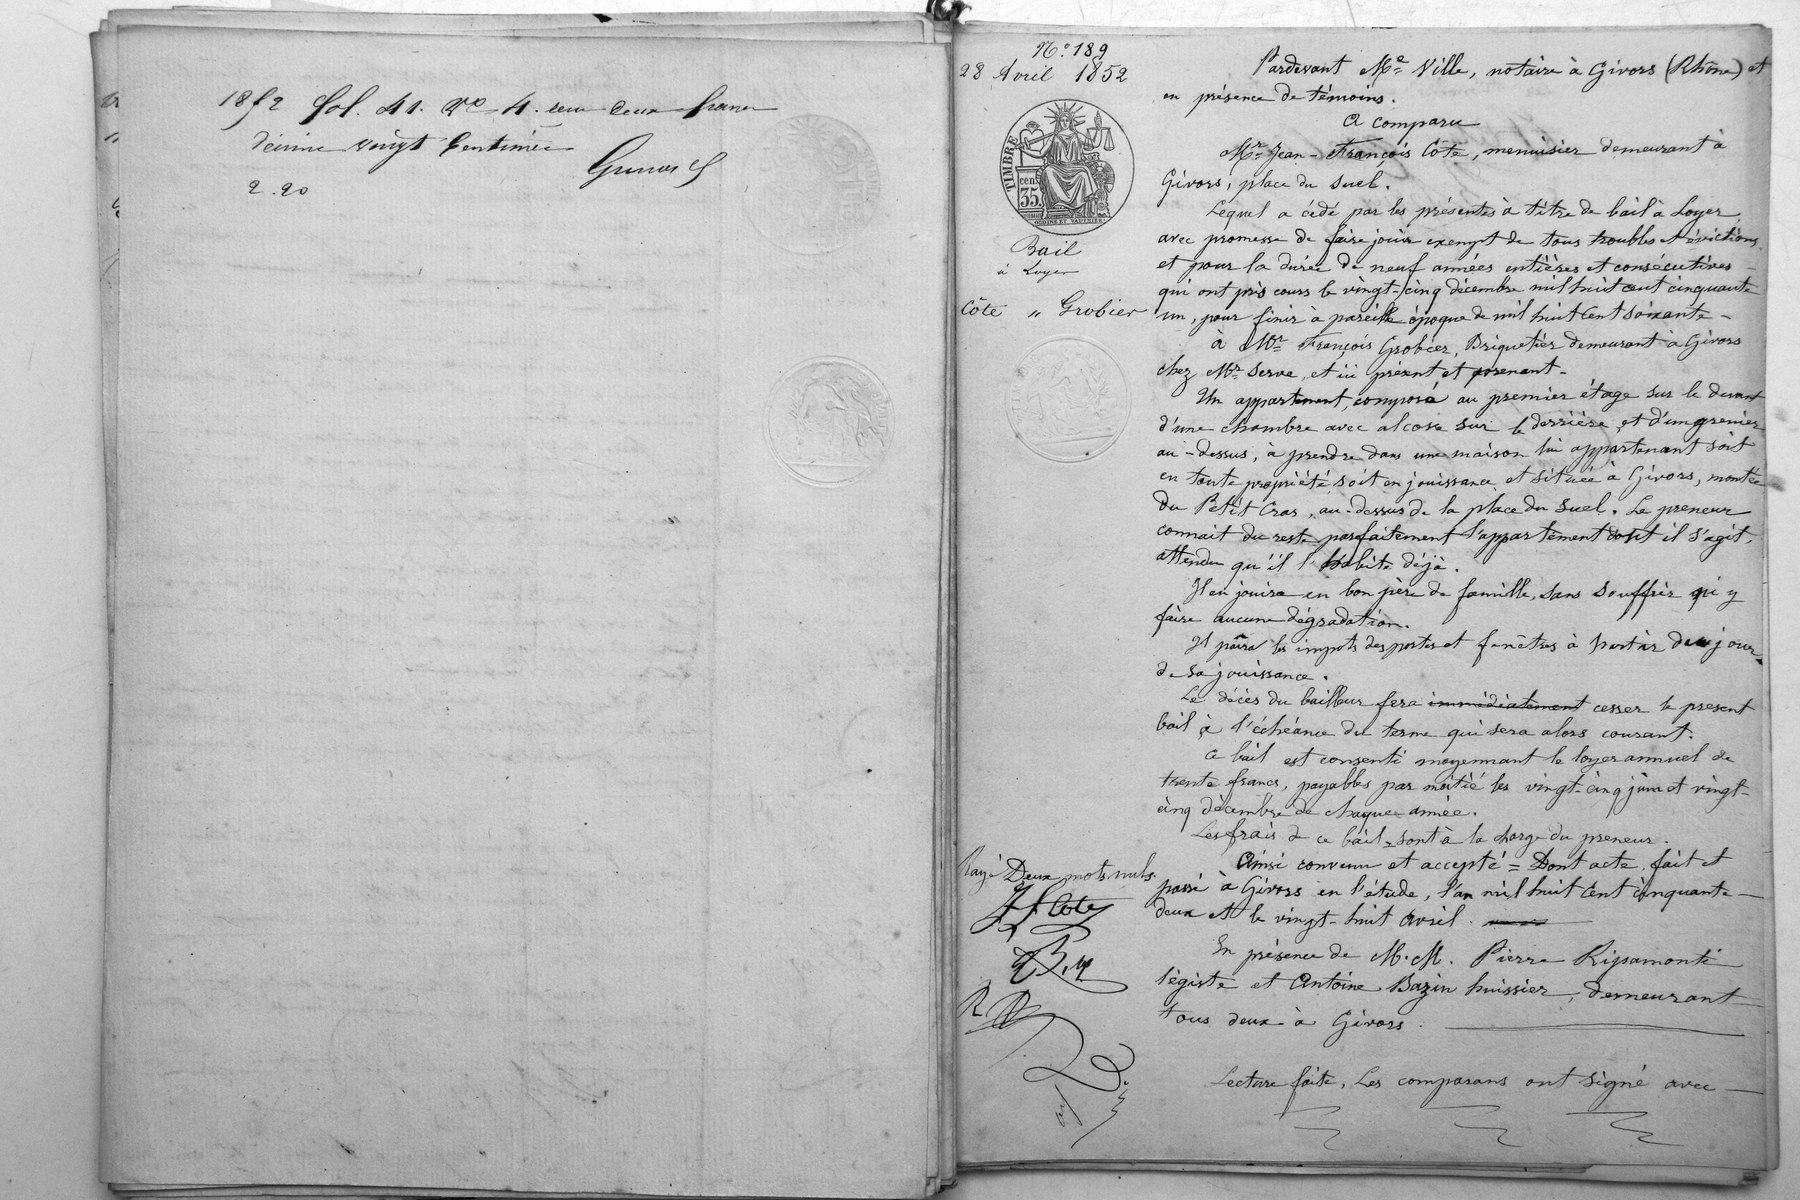 1852 fol. 41. Vo 4. reçu deux francs
décime vingt centimes
2.20
No. 189
28 Avril 1852
TIMBRE
cen.
35.
Bail
à Loyer
Côte " Grobier
Pardevant Me Ville, notaire à Givors (Rhône) et
en présence de témoins.
A comparu
Mr Jean-François Côte, menuisier demeurant à
Givors, place du Suel.
Lequel a cédé par les présentes à titre de bail à Loyer,
avec promesse de faire jouir exempt de tous troubles et évictions,
et pour la durée de neuf années entières et consécutives
qui ont pris cours le vingt-cinq décembre mil huit cent cinquante
un, pour finir à pareille époque de mil huit cent soixante -
à Mr François Grobier, Briquetier demeurant à Givors
chez Mr Serve, et ici présent et prenant -
Un appartement, composé au premier étage sur le devant
d'une chambre avec alcove sur le derrière, et d'un grenier
au-dessus, à prendre dans une maison lui appartenant soit
en toute propriété, soit en jouissance et située à Givors, montée
du Petit Cras, au-dessus de la place du Suel. Le preneur
connait du reste parfaitement l'appartement dont il s'agit,
attendu qu'il l'habite déjà.
Il en jouira en bon père de famille, sans souffrir qui y
faire aucune dégradation.
Il paîra les impots des portes et fenêtres à partir du jour
de sa jouissance.
Le décès du bailleur fera immédiatement cesser le present
bail à l'échéance du terme qui sera alors courant.
Ce bail est consenti moyennant le loyer annuel de
trente francs, payables par moitié les vingt-cinq juin et vingt-
cinq décembre de chaque année.
Les frais de ce bail sont à la charge du preneur.
Ainsi convenu et accepté = Dont acte, fait et
passé à Givors en l'étude, l'an mil huit cent cinquante -
deux et le vingt-huit avril.
En présence de M.M. Pierre Ripamonti
légiste et Antoine Bazin huissier, demeurant
tous deux à Givors.
Lecture faite, Les comparans ont signé avec
Rayé Deux mots nuls.
J f Cote